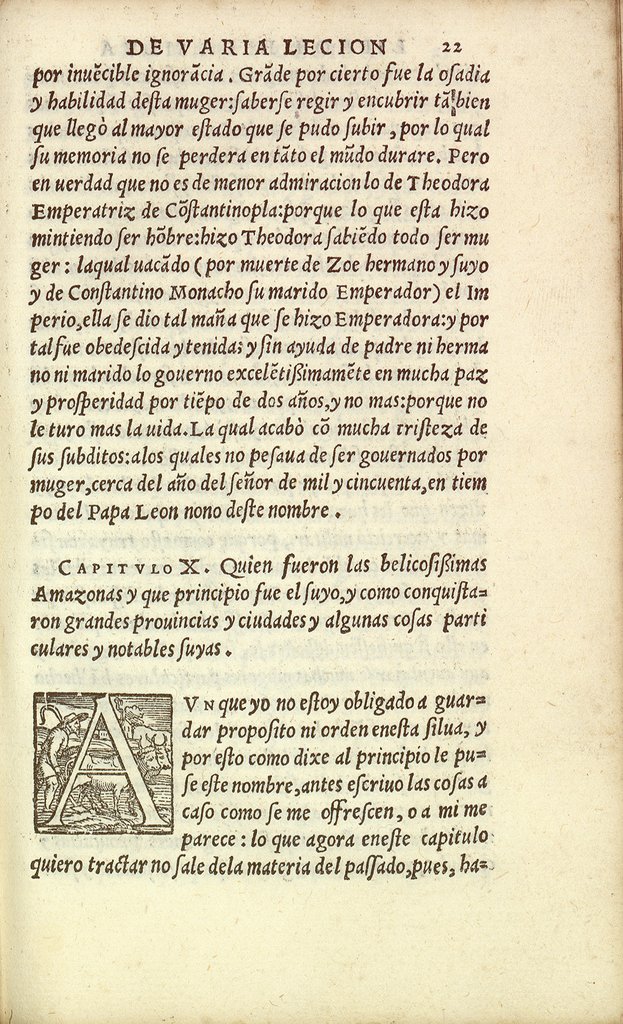 DE VARIA LECION 22
por inuẽcible ignorãcia. Grãde por cierto fue la oſadia
y habilidad deſta muger:ſaberſe regir y encubrir tãbien
que llegò al mayor eſtado que ſe pudo ſubir, por lo qual
ſu memoria no ſe perdera en tãto el mũdo durare. Pero
en uerdad que no es de menor admiracion lo de Theodora
Emperatriz de Cõſtantinopla:porque lo que eſta hizo
mintiendo ſer hõbre:hizo Theodora ſabiẽdo todo ſer mu
ger: laqual uacãdo (por muerte de Zoe hermano y ſuyo
y de Conſtantino Monacho ſu marido Emperador) el Im
perio,ella ſe dio tal maña que ſe hizo Emperadora:y por
tal fue obedeſcida y tenida; y ſin ayuda de padre ni herma
no ni marido lo gouerno excelẽtißimamẽte en mucha paz
y proſperidad por tiẽpo de dos años,y no mas:porque no
le turo mas la uida. La qual acabò cõ mucha triſteza de
ſus ſubditos:alos quales no peſaua de ſer gouernados por
muger,cerca del año del ſeñor de mil y cincuenta,en tiem
po del Papa Leon nono deſte nombre.
CAPITVLO X. Quien fueron las belicoſißimas
Amazonas y que principio fue el ſuyo,y como conquiſta=
ron grandes prouincias y ciudades y algunas coſas parti
culares y notables ſuyas.
AVNque yo no eſtoy obligado a guar=
dar propoſito ni orden eneſta ſilua, y
por eſto como dixe al principio le pu=
ſe eſte nombre,antes eſcriuo las coſas a
caſo como ſe me offreſcen, o a mi me
parece: lo que agora eneſte capitulo
quiero tractar no ſale dela materia del paſſado,pues, ha=